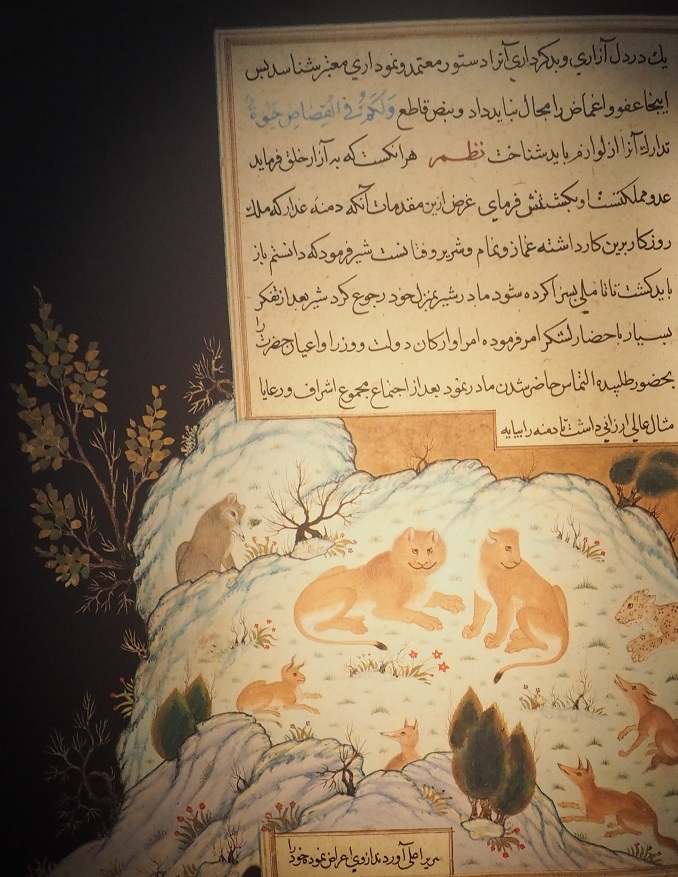 يك در دل آزاري و بدكرداري آنرا دستور معتمد و نموداري معتبر شناسد پس
اينجا عفو و اغماض را مجال نبايد داد و بنص قاطع وَلَكُمْ فِي الْقِصَاصِ حَيٰوةٌ
تدارك آنرا از لوازم بايد شناخت نظم هر انكست كه به آزار خلق فرمايد
عدو مملكتست او بكشتنش فرماي غرض ازين مقدمات آنكه دمنه غدار كه ملك
روزكار برين كار داشته غماز و نمام و شرير و فتانست شير فرمود كه دانستم باز
بايد كشت تا تاملي بسزا كرده شود مادر شير بمنزل خود رجوع كرد شير بعد از تفكر
بسيار باحضار لشكر امر فرموده امرا و اركان دولت و وزرا و اعيان حضرت را
بحضور طلبيده التماس حاضر شدن مادر نمود بعد از اجتماع مجموع اشراف و رعايا
مثال عالي ارزاني داشت تا دمنه را بپايه
سرير اعلي آوردند از وي اعراض نموده خود را